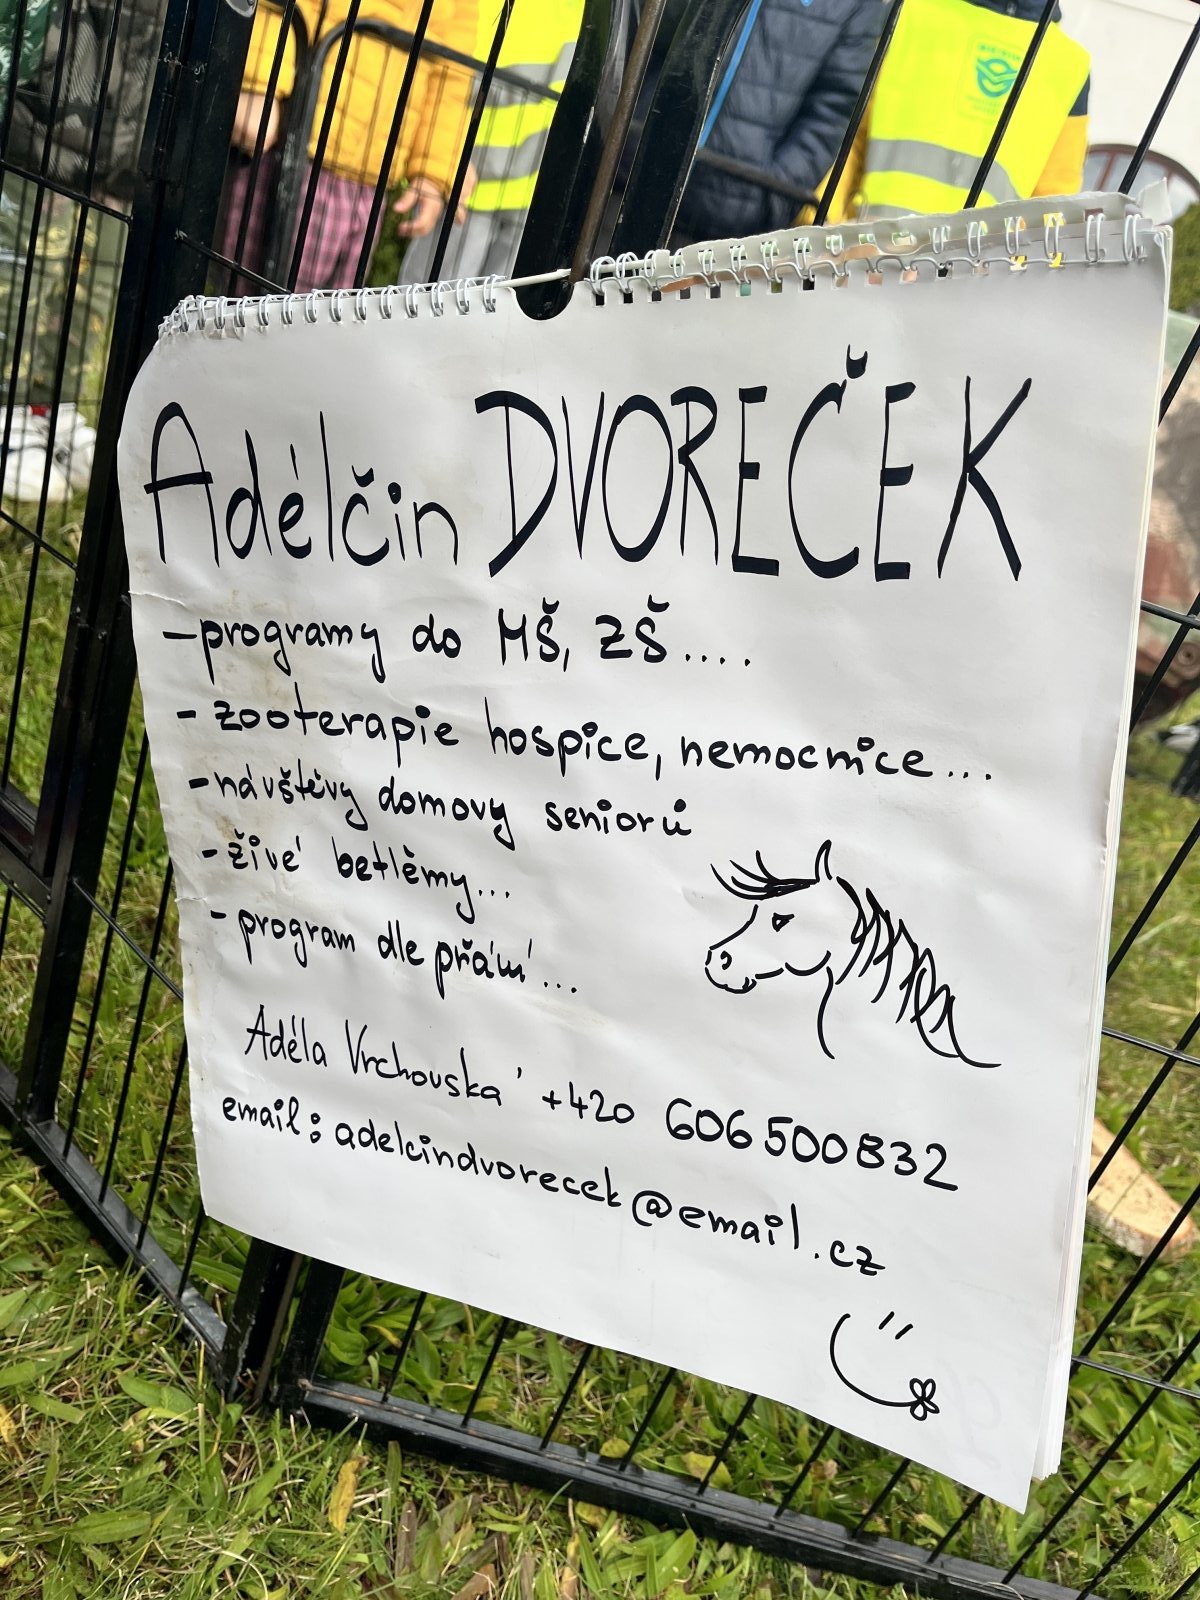 Adélčin DVOREČEK
- programy do MŠ, ZŠ....
- zooterapie hospice, nemocnice...
- návštěvy domovy seniorů
- živé betlémy...
- program dle přání...
Adéla Vrchovská +420 606500832
email: adelcindvorecek@email.cz